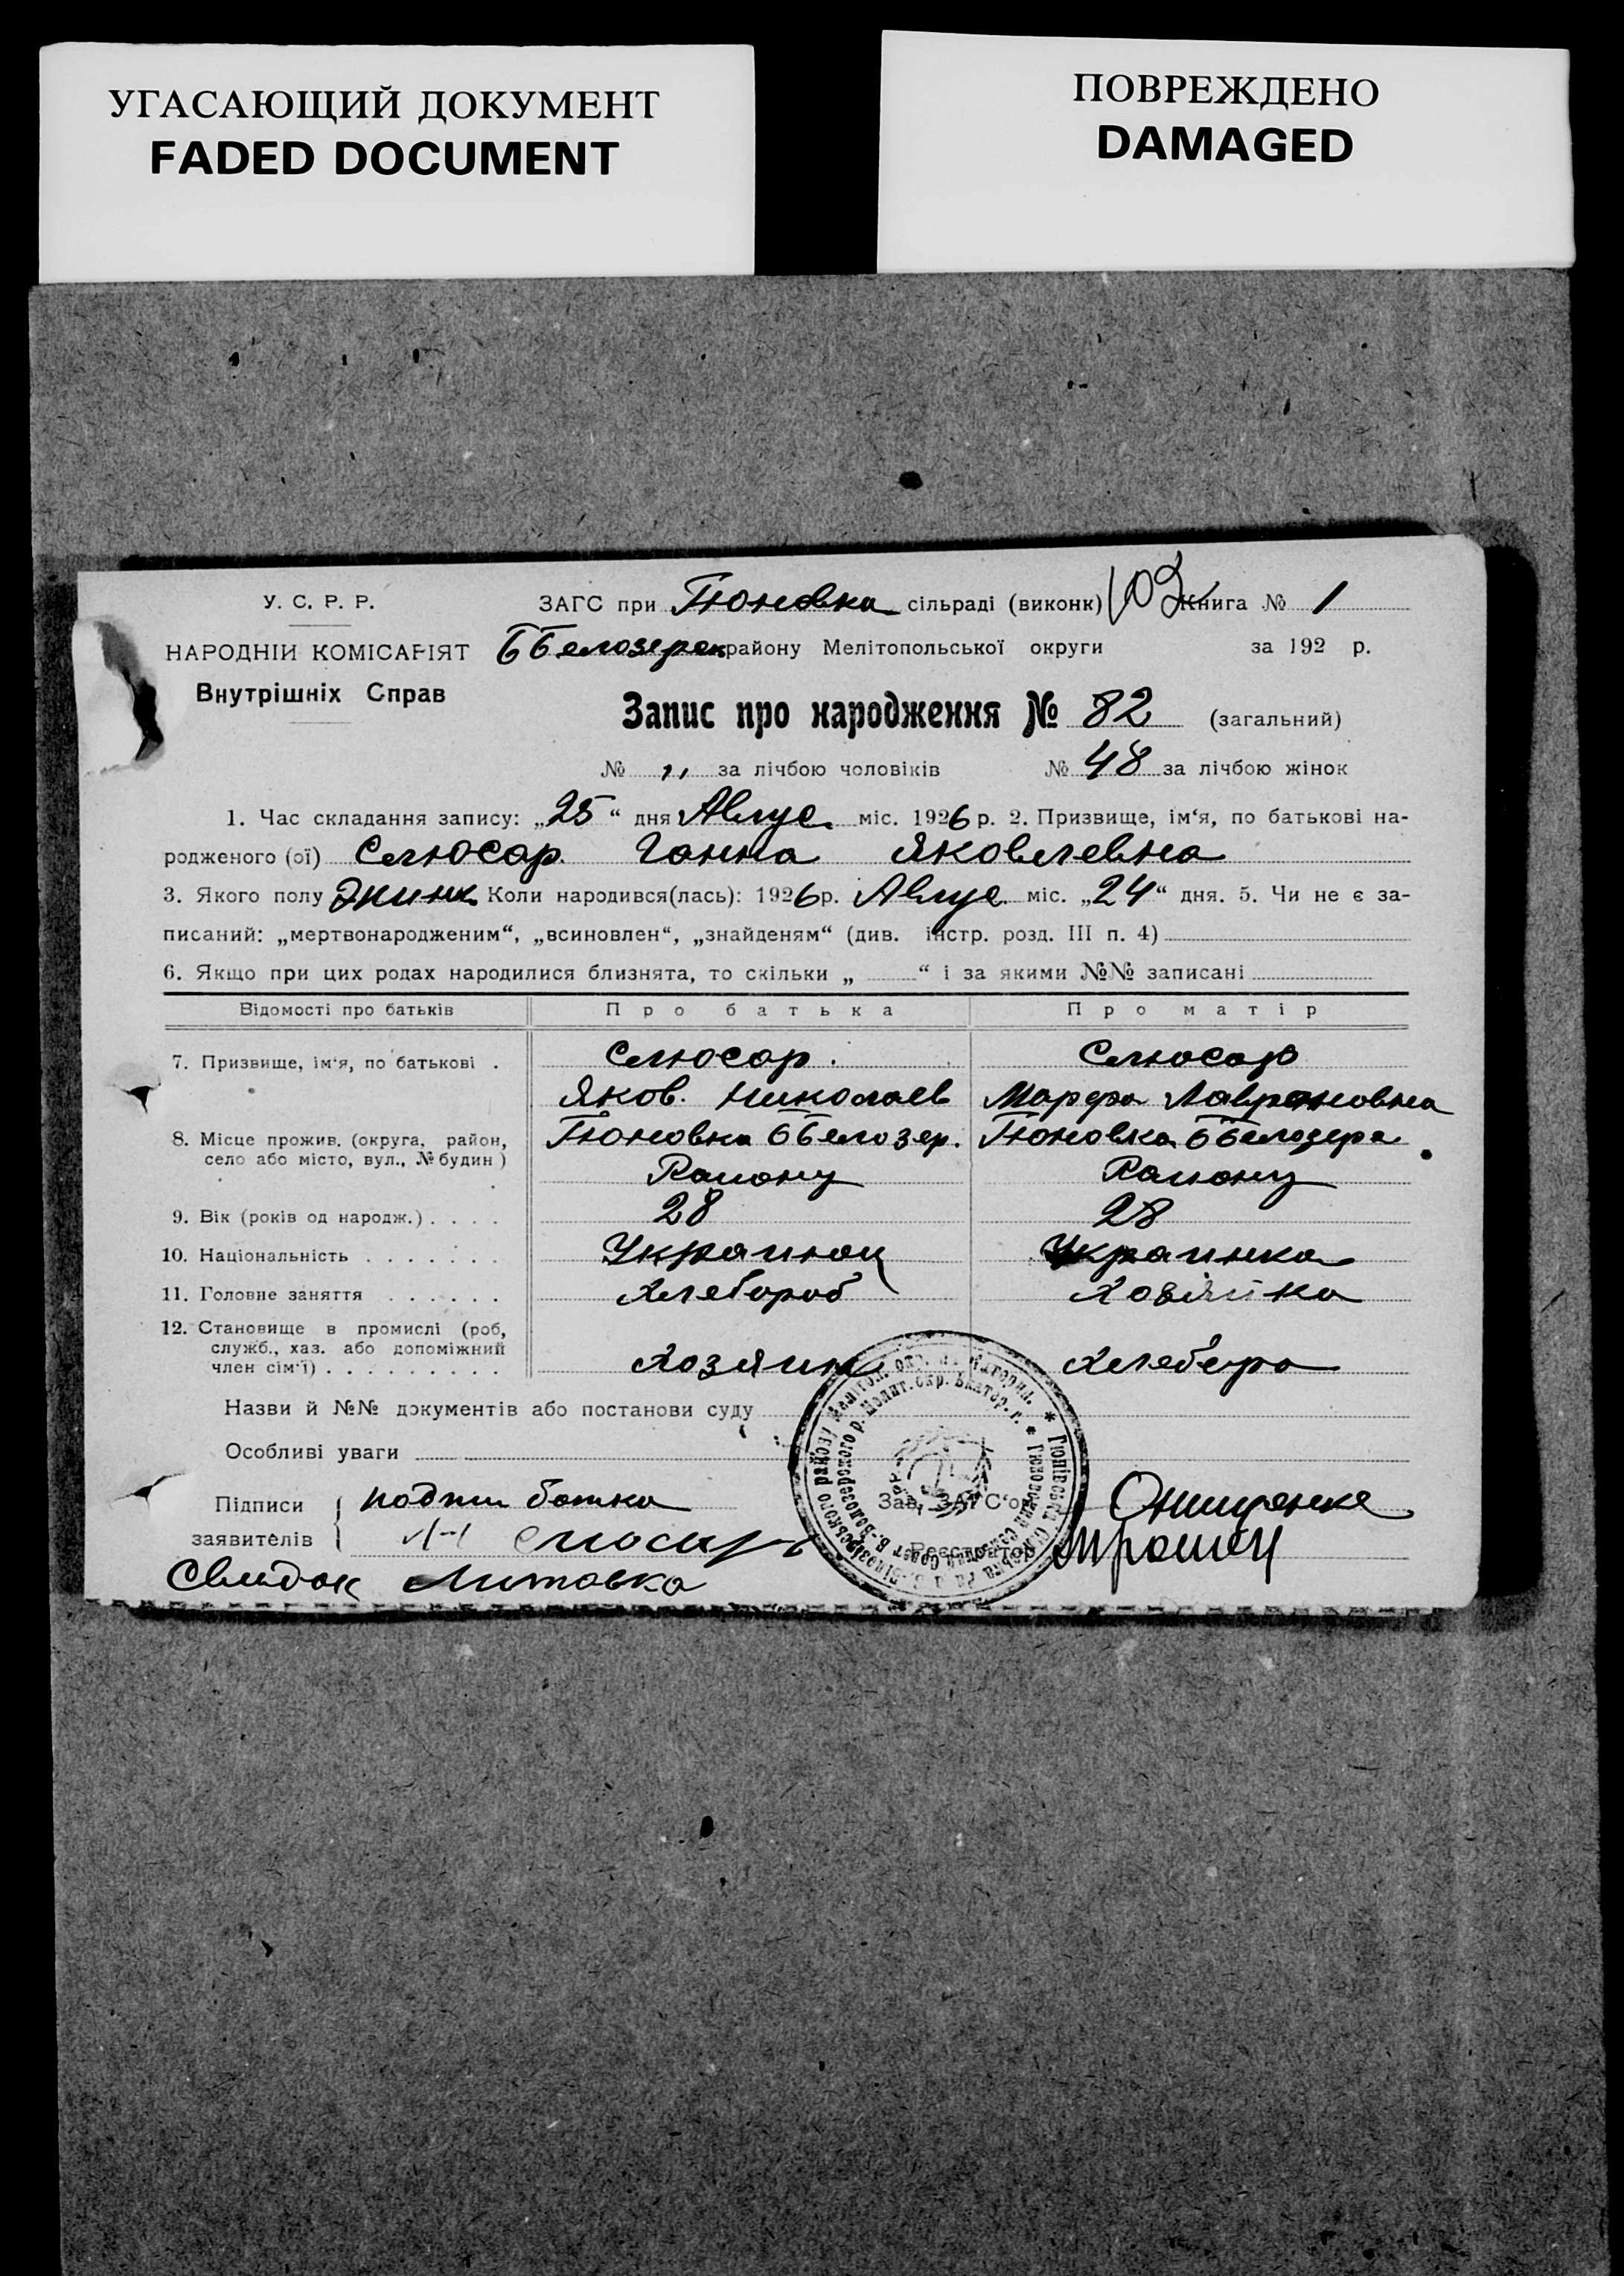 УГАСАЮЩИЙ ДОКУМЕНТ
FADED DOCUMENT
ПОВРЕЖДЕНО
DAMAGED
У. С. Р. Р.
ЗАГС при Гюновка сільраді (виконк) Книга № 1
НАРОДНІЙ КОМІСАРІЯТ
ББелозерск району Мелітопольської округи за 192 р.
Внутрішніх Справ
Запис про народження № 82 (загальний)
№ „ за лічбою чоловіків № 48 за лічбою жінок
1. Час складання запису: „25“ дня Авгус міс. 1926 р. 2. Призвище, ім'я, по батькові на-
родженого (ої) Слюсар Ганна Яковлевна
3. Якого полу Жинк Коли народився(лась): 1926 р. Авгус міс. „24“ дня. 5. Чи не є за-
писаний: „мертвонародженим“, „всиновлен“, „знайденям“ (див. інстр. розд. III п. 4)
6. Якщо при цих родах народилися близнята, то скільки „ “ і за якими №№ записані
Відомості про батьків Про батька Про матір
7. Призвище, ім'я, по батькові . Слюсар. Слюсар
Яков. Николаев Марфа Лавроновна
8. Місце прожив. (округа, район,
село або місто, вул., № будин) Гюновка ББелозер. Гюновка ББелозера
Районну Районну
9. Вік (років од народж.) . . . . 28 28
10. Національність . . . . . . . Украинец Украинка
11. Головне заняття . . . . . . Хлебороб Хозяйка
12. Становище в промислі (роб,
служб., хаз. або допоміжний
член сім'ї) . . . . . . . . . Хозяин
Назви й №№ документів або постанови суду
Особливі уваги
Підписи
заявителів
подпи батка
Слюсарь
Зав. ЗАГС'ом Онищенко
Реєстратор
Свидок Литовка